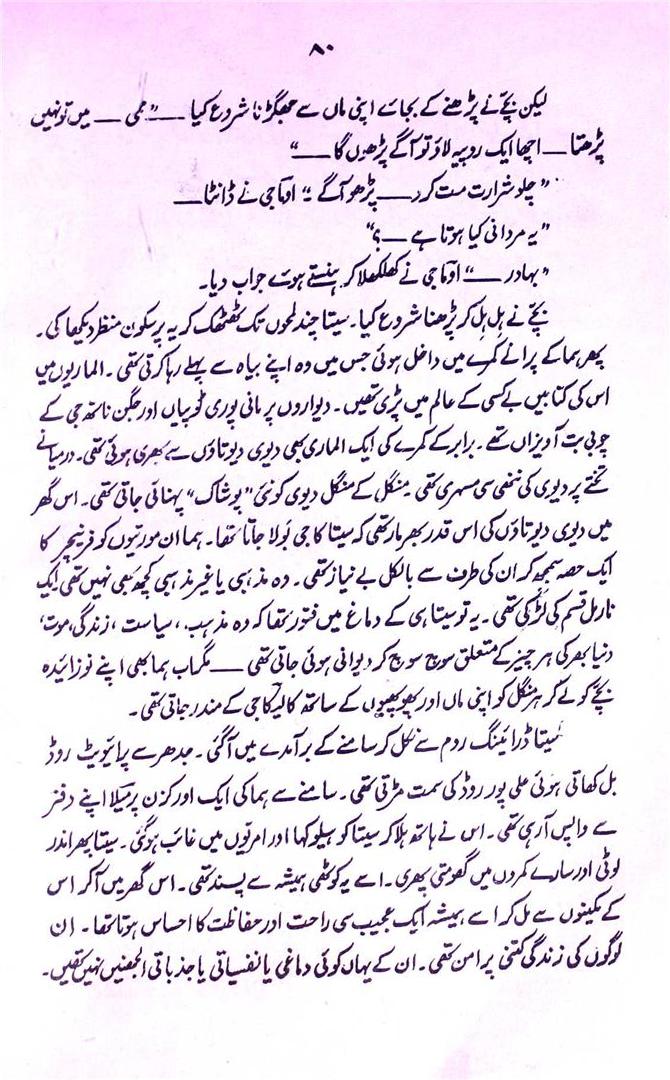 ۸۰
لیکن بچّے نے پڑھنے کے بجائے اپنی ماں سے جھگڑنا شروع کیا ــــ "ممی ــــ میں تو نہیں
پڑھتا ــــ اچھا ایک روپیہ لاؤ تو آگے پڑھوں گا ــــ"
"چلو شرارت مت کرو ــــ پڑھو آگے" اوماجی نے ڈانٹا ــــ
"یہ مردانی کیا ہوتا ہے ــــ؟"
"بہادر ــــ" اوماجی نے کھلکھلا کر ہنستے ہوئے جواب دیا۔
بچّے نے ہل ہل کر پڑھنا شروع کیا۔ سیتا چند لمحوں تک ٹھٹھک کر یہ پرسکون منظر دیکھا کی۔
پھر ہما کے پرانے کمرے میں داخل ہوئی جس میں وہ اپنے بیاہ سے پہلے رہا کرتی تھی۔ الماریوں میں
اس کی کتابیں بے کسی کے عالم میں پڑی تھیں۔ دیواروں پر مانی پوری ٹوپیاں اور جگن ناتھ جی کے
چوبی بت آویزاں تھے۔ برابر کے کمرے کی ایک الماری بھی دیوی دیوتاؤں سے بھری ہوئی تھی۔ درمیانے
تختے پر دیوی کی ننھی سی مسہری تھی۔ منگل کے منگل دیوی کو نئی "پوشاک" پہنائی جاتی تھی۔ اس گھر
میں دیوی دیوتاؤں کی اس قدر بھرمار تھی کہ سیتا کا جی بولا جاتا تھا۔ ہما ان مورتیوں کو فرنیچر کا
ایک حصہ سمجھ کر ان کی طرف سے بالکل بے نیاز تھی۔ وہ مذہبی یا غیر مذہبی کچھ بھی نہیں تھی ایک
نارمل قسم کی لڑکی تھی۔ یہ تو سیتا ہی کے دماغ میں فتور تھا کہ وہ مذہب، سیاست، زندگی، موت،
دنیا بھر کی ہر چیز کے متعلق سوچ سوچ کر دیوانی ہوئی جاتی تھی ــــ مگر اب ہما بھی اپنے نوزائیدہ
بچّے کو لے کر ہر منگل کو اپنی ماں اور پھوپھیوں کے ساتھ کالیکا جی کے مندر جاتی تھی۔
سیتا ڈرائینگ روم سے نکل کر سامنے کے برآمدے میں آگئی۔ جدھر سے پرائیویٹ روڈ
بل کھاتی ہوئی علی پور روڈ کی سمت مڑتی تھی۔ سامنے سے ہما کی ایک اور کزن پرمیلا اپنے دفتر
سے واپس آرہی تھی۔ اس نے ہاتھ ہلا کر سیتا کو ہیلو کہا اور امریوں میں غائب ہوگئی۔ سیتا پھر اندر
لوٹی اور سارے کمروں میں گھومتی پھری۔ اسے یہ کوٹھی ہمیشہ سے پسند تھی۔ اس گھر میں آکر اس
کے مکینوں سے مل کر اسے ہمیشہ ایک عجیب سی راحت اور حفاظت کا احساس ہوتا تھا۔ ان
لوگوں کی زندگی کتنی پرامن تھی۔ ان کے یہاں کوئی دماغی یا نفسیاتی یا جذباتی الجھنیں نہیں تھیں۔